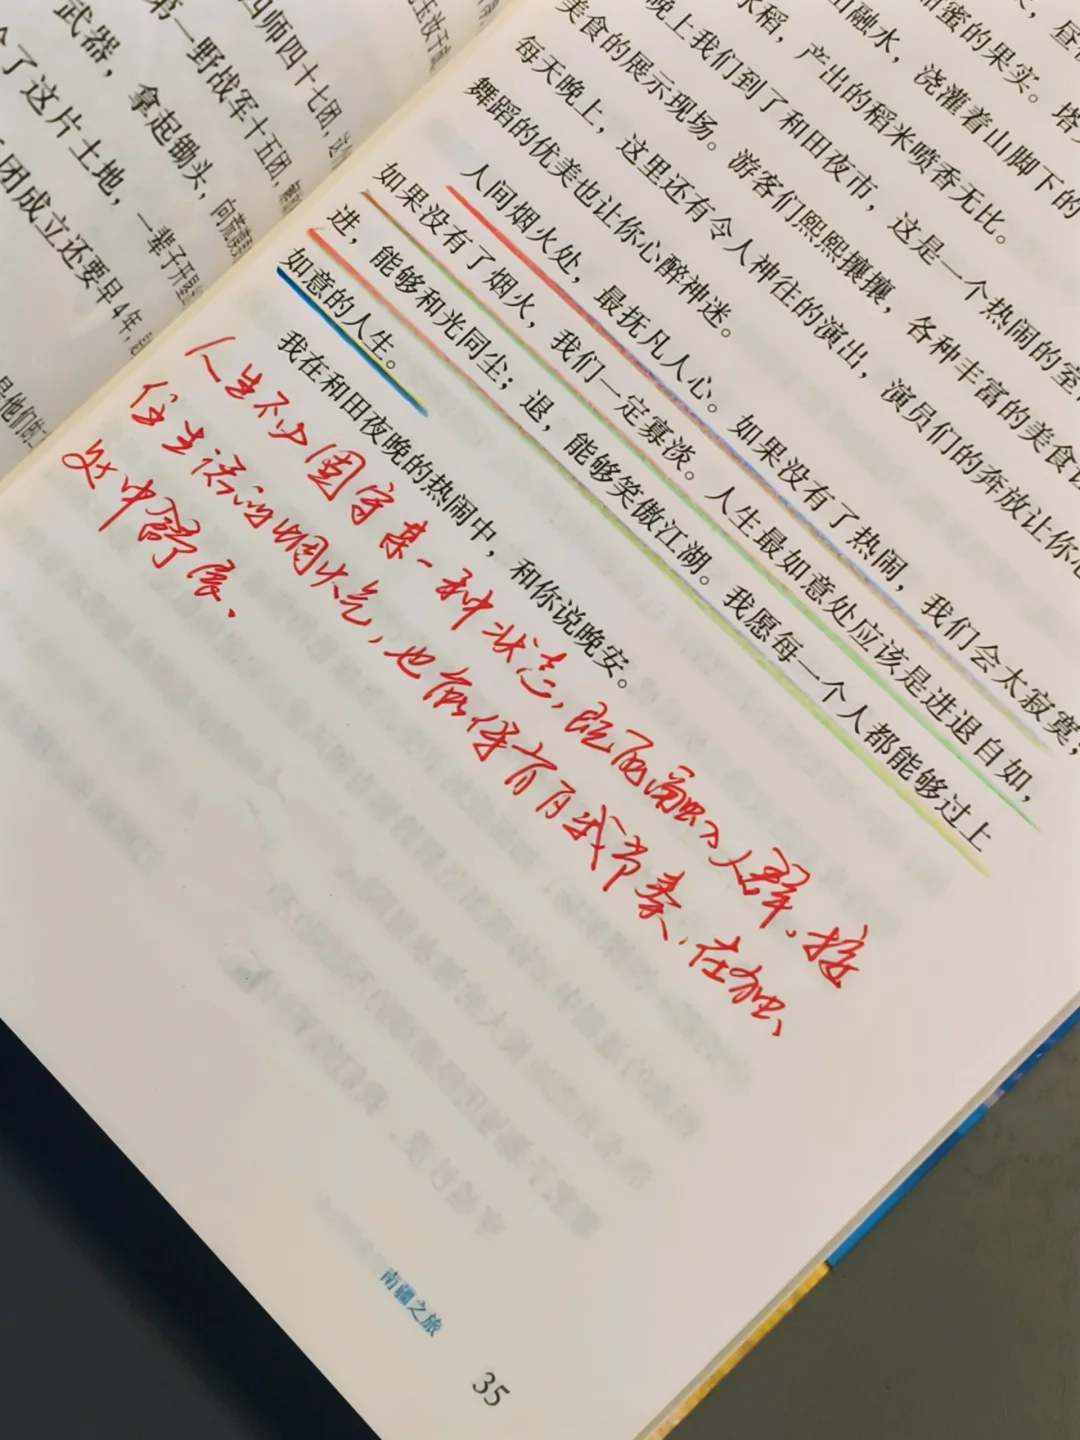 四师四十七团，这
第一野战军十五团，
武器，拿起锄头，向荒漠
了这片土地，一辈子开垦
团成立还要早4年，
是他们的
甜蜜的果实。塔
山融水，浇灌着山脚下的
水稻，产出的稻米喷香无比。
晚上我们到了和田夜市，这是一个热闹的室
美食的展示现场。游客们熙熙攘攘，各种丰富的美食让
每天晚上，这里还有令人神往的演出，演员们的奔放让你心
舞蹈的优美也让你心醉神迷。
人间烟火处，最抚凡人心。如果没有了热闹，我们会太寂寞；
如果没有了烟火，我们一定寡淡。人生最如意处应该是进退自如，
进，能够和光同尘；退，能够笑傲江湖。我愿每一个人都能够过上
如意的人生。
我在和田夜晚的热闹中，和你说晚安。
人生不必固守某一种状态，既能融入人群，接
住生活的烟火气，也能保有自我节奏，在独
处中舒展。
南疆之旅
35